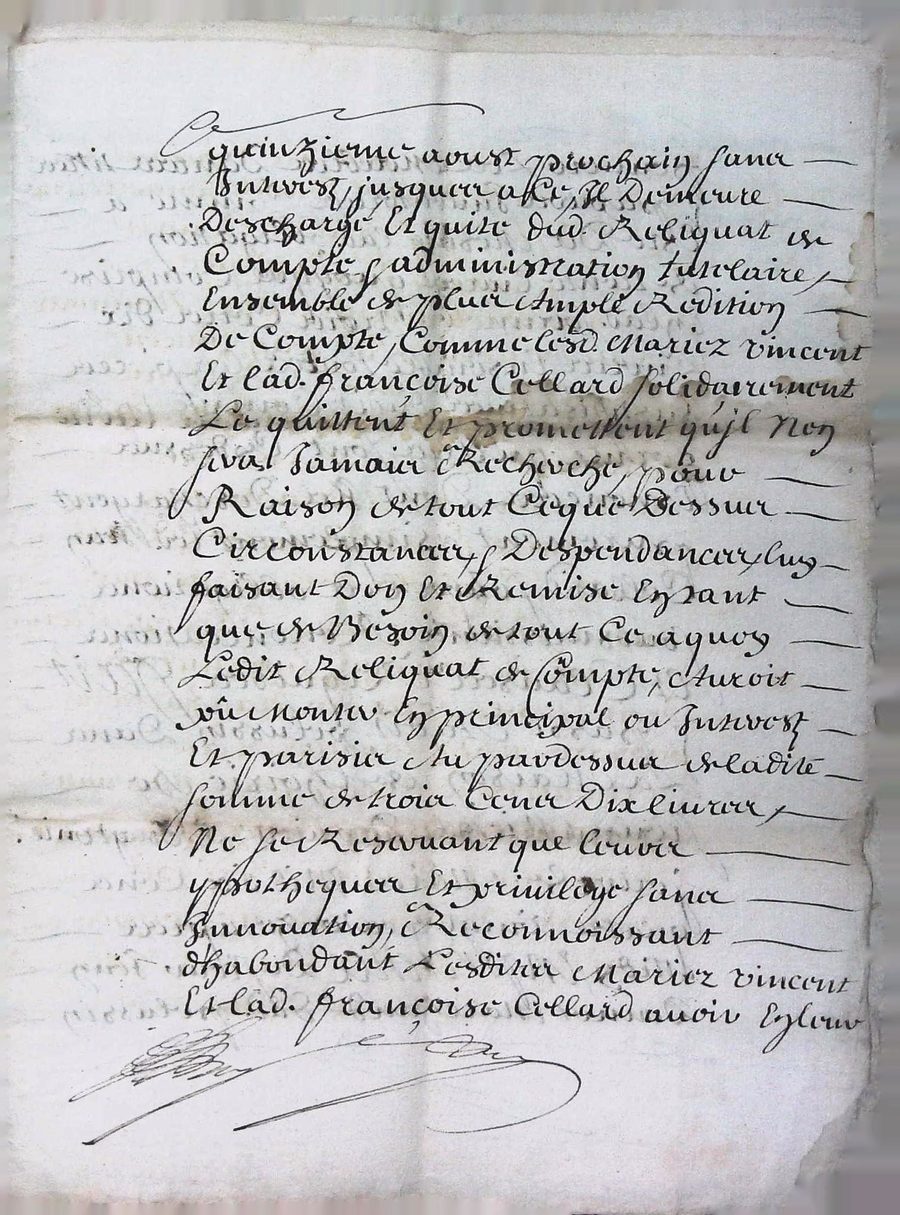 quinzieme aoust prochain sans
Interest, jusques a Ce, Il Demeure
Deschargé Et quite dud. Reliquat de
Compte & administration tutelaire,
Ensemble de plus Ample Redition
De Compte, Comme lesd. Mariez vincent
Et lad. françoise Cellard solidairement
Le quittent Et promettent qu'jl Nen
sera Jamais Recherché, pour
Raison de tout Ceque Dessus
Circonstances, & Despendances, luy
faisant Don Et Remise Entant
que de Besoin de tout Ce aquoy
Ledit Reliquat de Compte, Auroit
pû Monter En principal ou Interest
Et parisis Au pardessus de ladite
somme de trois Cens Dix livres,
Ne se Reservant que leurs
ypotheques Et privilege sans
Innovation, Reconnoissant
d'habondant Lesdites Mariez vincent
Et lad. françoise Cellard avoir En leur